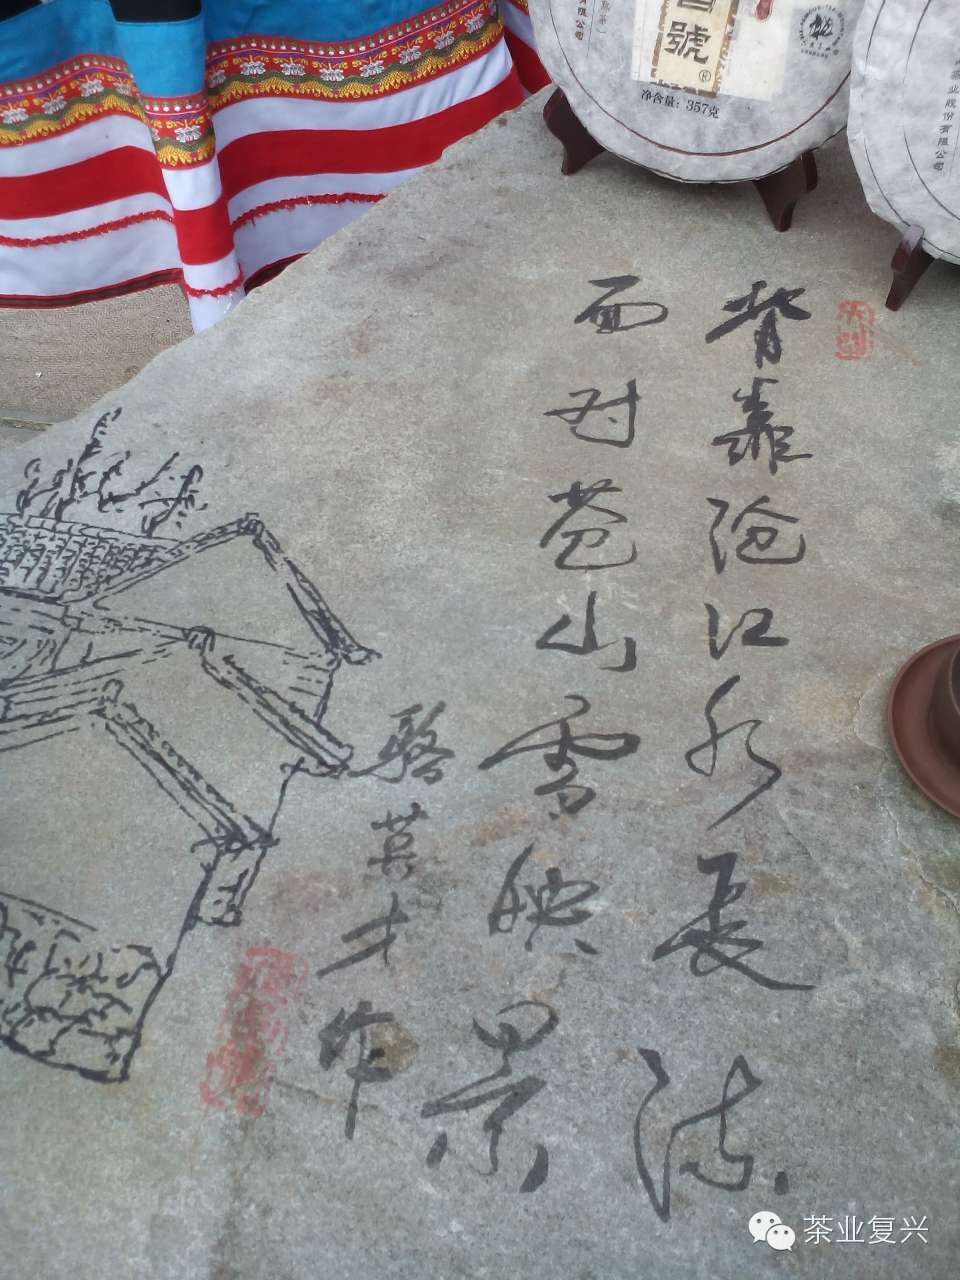 號®
净含量：357克
茶业股份有限公司
背靠沧江水长流
面对苍山雪映景
骆英才作
茶业复兴